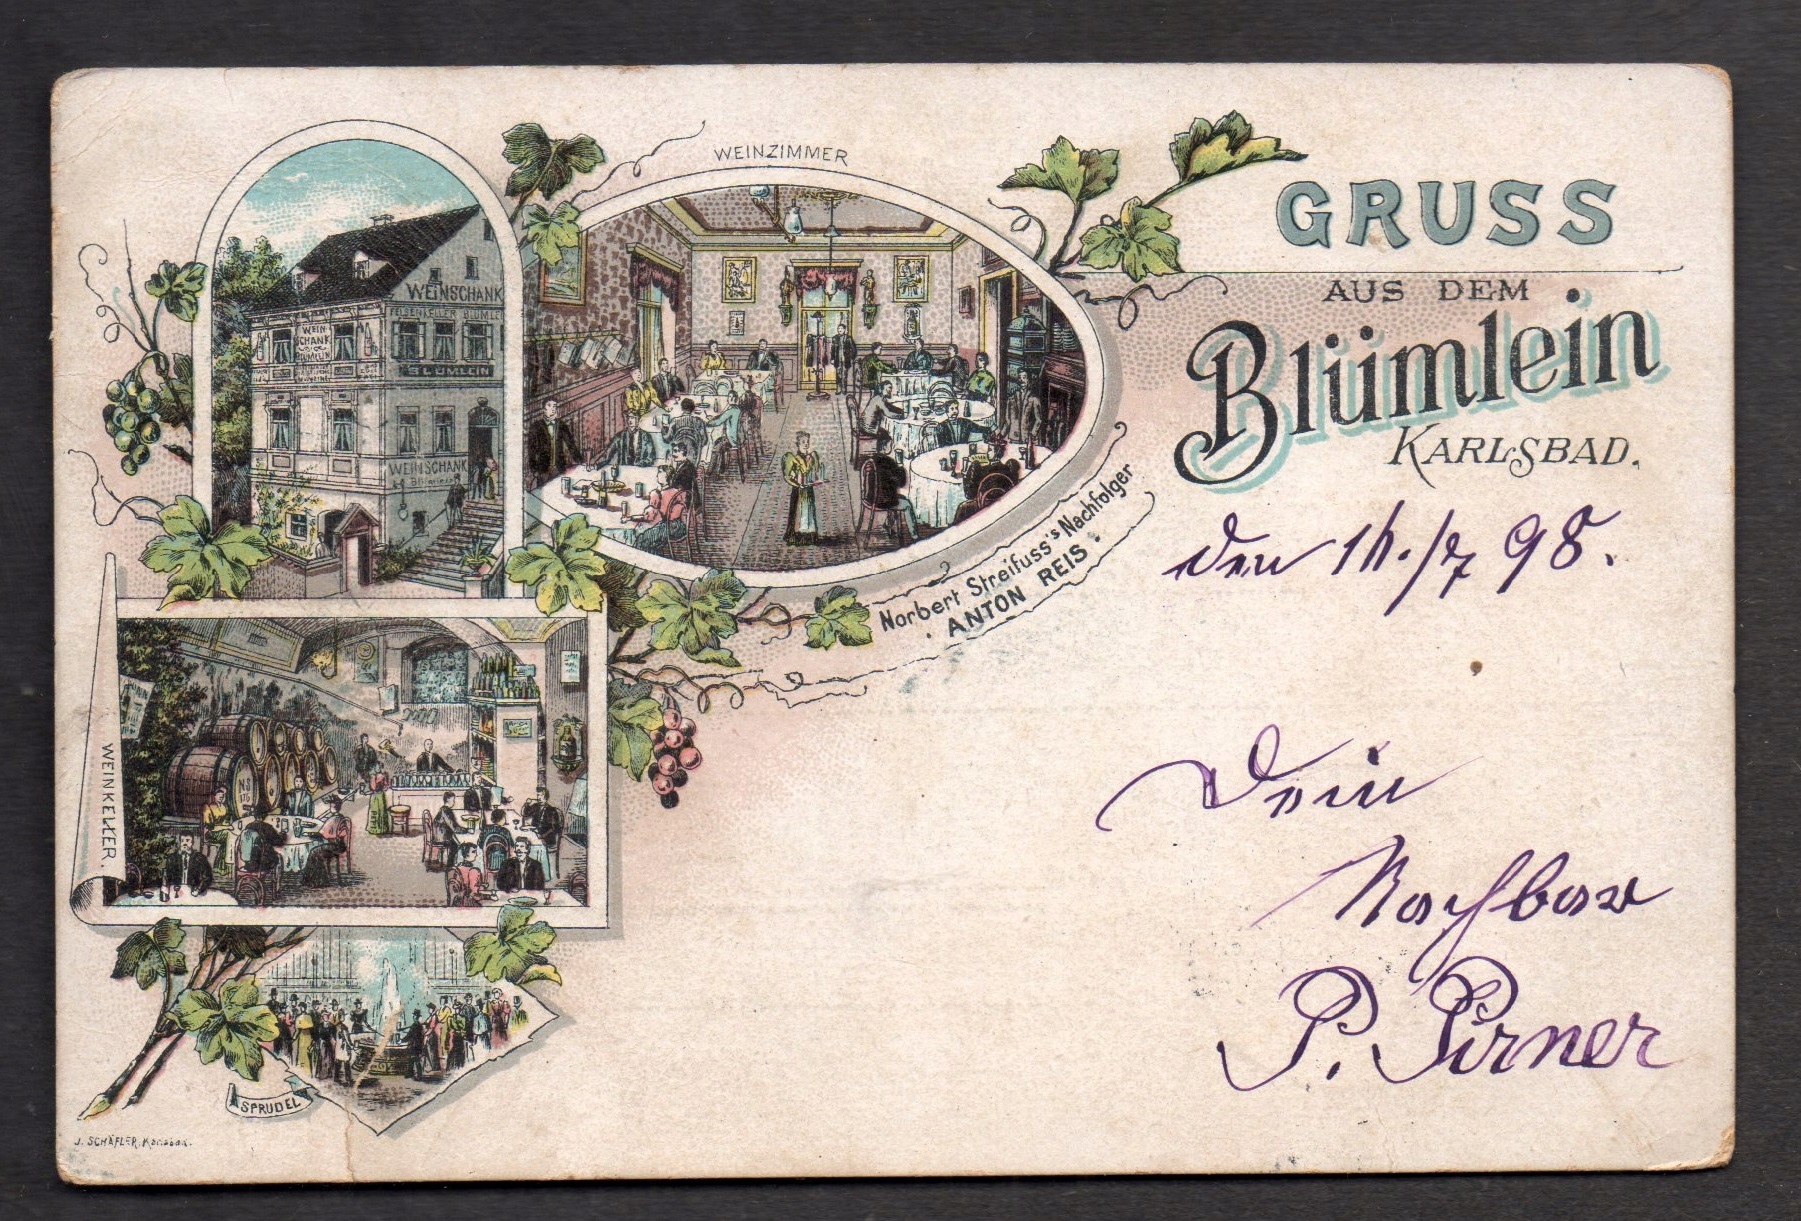 WEINZIMMER
GRUSS
AUS DEM
Blümlein
KARLSBAD.
WEINSCHANK
FELSENKELLER BLÜMLEIN
WEIN
SCHANK
BLÜMLEIN
BLÜMLEIN
WEINSCHANK
Norbert Streifuss's Nachfolger
ANTON REIS.
den 14./7 98.
WEINKELLER.
Dein
Nachbar
P. Pirner
SPRUDEL
J. SCHÄFLER, Karlsbad.